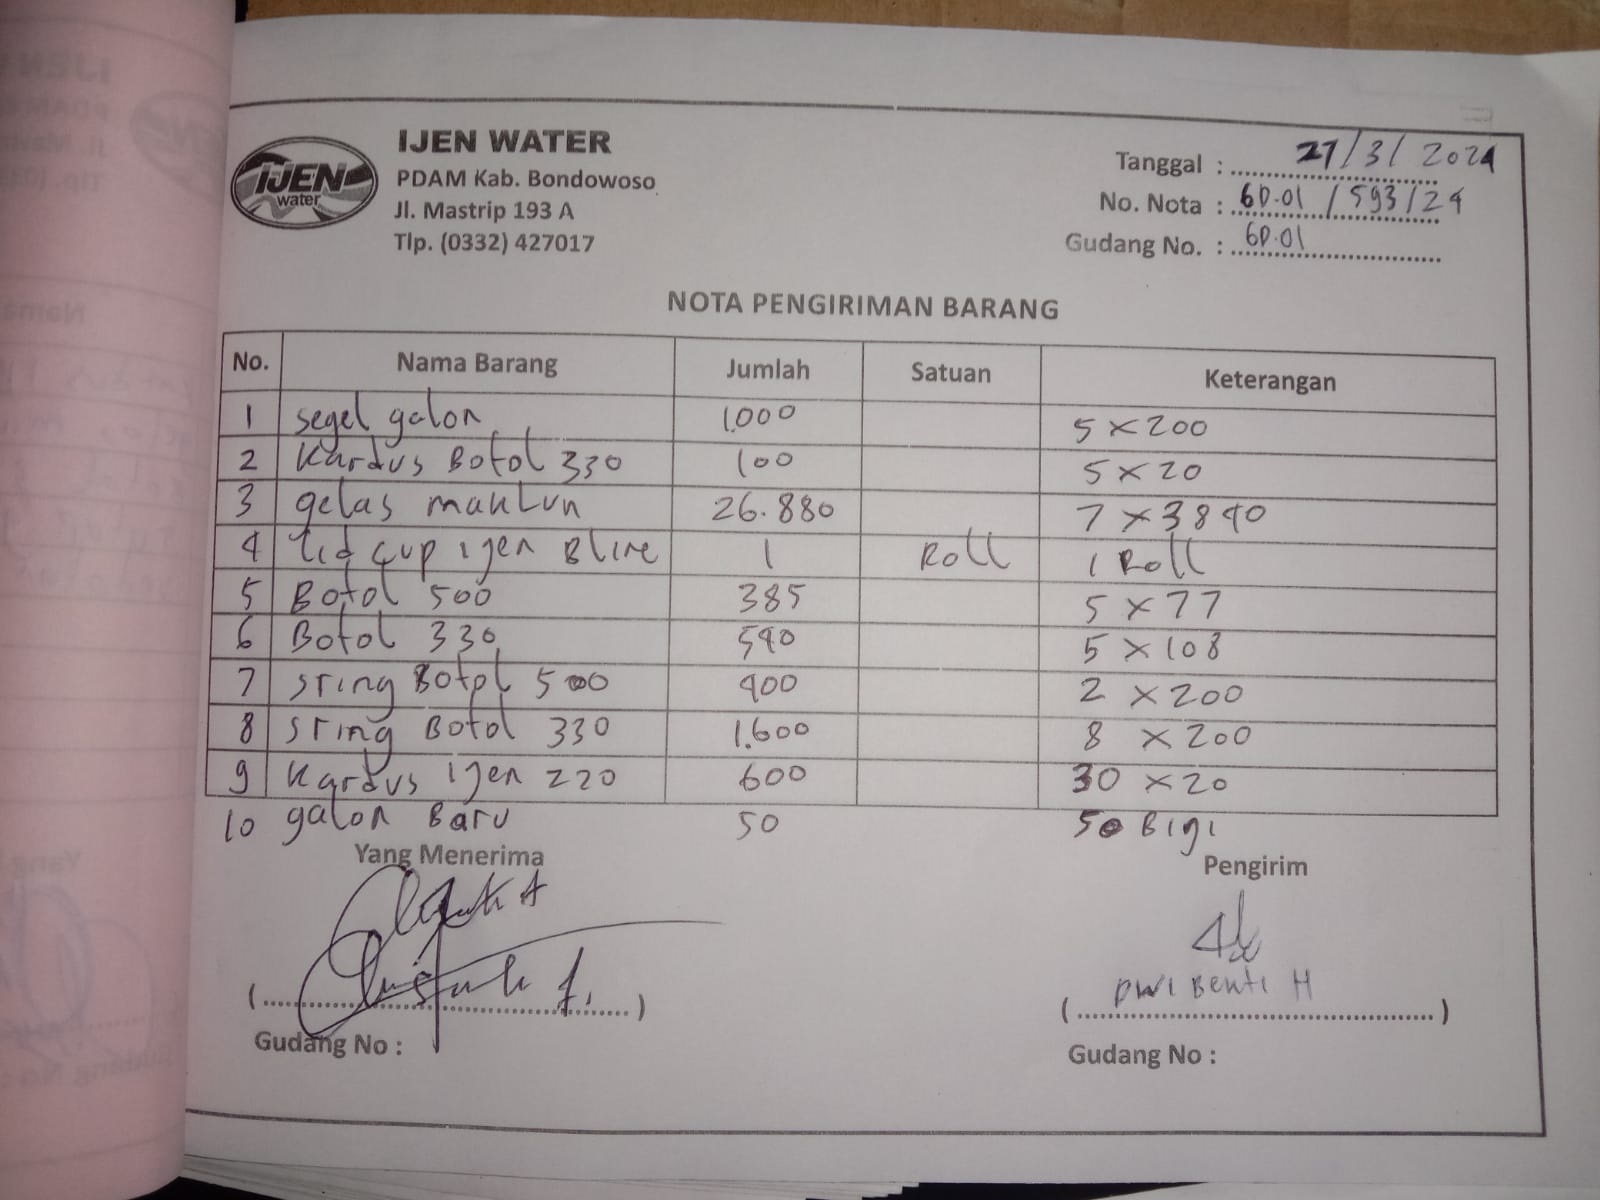 IJEN WATER
PDAM Kab. Bondowoso
Jl. Mastrip 193 A
Tlp. (0332) 427017
IJEN
water
Tanggal : 27/3/2024
No. Nota : 60.01 / 593 / 24
Gudang No. : 60.01
NOTA PENGIRIMAN BARANG
No. Nama Barang Jumlah Satuan Keterangan
1 segel galon 1.000 5 x 200
2 Kardus Botol 330 100 5 x 20
3 gelas maklun 26.880 7 x 3840
4 lid cup ijen Bline 1 Roll 1 Roll
5 Botol 500 385 5 x 77
6 Botol 330 540 5 x 108
7 sring Botol 500 400 2 x 200
8 sring Botol 330 1.600 8 x 200
9 Kardus ijen 220 600 30 x 20
10 galon Baru 50 50 Biji
Yang Menerima Pengirim
Dwi Benti H
Gudang No : Gudang No :